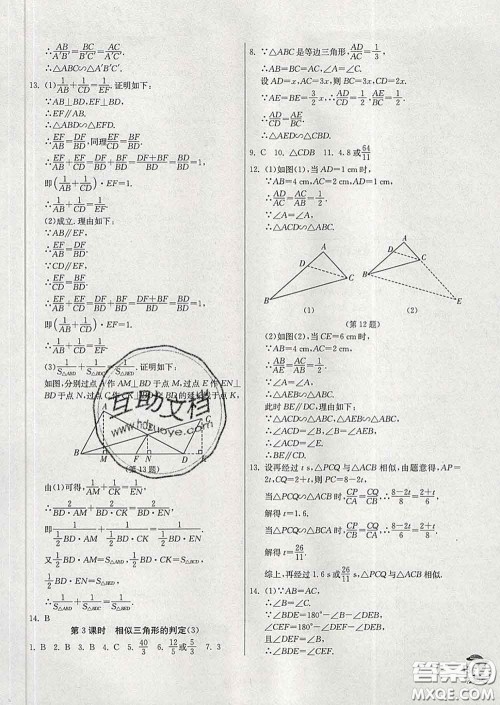 ∴AB/A′B′=BC/B′C′=AC/A′C′.
∴△ABC∽△A′B′C′.
13. (1)1/AB+1/CD=1/EF.证明如下:
∵AB⊥BD,EF⊥BD,
∴EF∥AB.
∴△ABD∽△EFD.
∴EF/AB=DF/BD,同理EF/CD=BF/BD.
∴EF/AB+EF/CD=DF/BD+BF/BD=DF+BF/BD=BD/BD=1,
即(1/AB+1/CD)·EF=1.
∴1/AB+1/CD=1/EF.
(2)成立.理由如下:
∵AB∥EF,
∴EF/AB=DF/BD.
∵CD∥EF,
∴EF/CD=BF/BD.
∴EF/AB+EF/CD=DF/BD+BF/BD=DF+BF/BD=BD/BD=1,
即(1/AB+1/CD)·EF=1.
∴1/AB+1/CD=1/EF.
(3)1/S△ABD+1/S△BCD=1/S△BED.证明如下:
如图,分别过点A作AM⊥BD于点M,过点E作EN⊥
BD于点N,过点C作CK⊥BD的延长线于点K,
A
B M F N D K
(第13题)
由(1)可得,1/AM+1/CK=1/EN,
∴2/BD·AM+2/BD·CK=2/BD·EN,
即1/½BD·AM+1/½BD·CK=1/½BD·EN.
又∵½BD·AM=S△ABD,½BD·CK=S△BCD,
½BD·EN=S△BED,
∴1/S△ABD+1/S△BCD=1/S△BED.
14. B
第3课时 相似三角形的判定(3)
1. B 2. B 3. C 4. C 5. 40/3 6. 12/5或5/3 7. 3
8. ∵△ABC是等边三角形,AD/AC=1/3,
∴AB=BC=AC.
设AD=x,则AC=3x,BC=3x,CD=2x.
∵AE=BE=3/2x,∴AD/CD=1/2,AE/BC=1/2.
∴AD/CD=AE/BC.
∵∠A=∠C=60°,
∴△AED∽△CBD.
9. C 10. △CDB 11. 4.8或64/11
12. (1)如图(1),当AD=1 cm时,
∵AB=4 cm,AC=2 cm,
∴AD/AC=AC/AB=1/2.
∵∠A=∠A,
∴△ACD∽△ABC.
A
D
B
C
(1)
A
D
B
C
E
(2)
(第12题)
(2)如图(2),当CE=6 cm时,
∵AB=4 cm,AC=2 cm,AD=1 cm,
∴AD/AB=AC/AE=1/4.
∴BE∥DC.
此时BE∥DC,理由如下:
∵△ACD∽△AEB,
∴∠ACD=∠E.
∴BE∥CD.
13. 设再经过t s,△CPQ与△ACB相似,由题意得,AP=
2t,CQ=2+t,则PC=8-2t.
当△CPQ∽△CAB时,CP/CA=CQ/CB,∴8-2t/8=2+t/6.
解得t=1.6.
当△CPQ∽△CBA时,CP/CB=CQ/CA,∴8-2t/6=2+t/8.
解得t=26/11.
综上,再经过1.6 s或26/11 s,△CPQ与△ACB相似.
14. (1)∵AB=AC,
∴∠B=∠C.
∵∠BDE=180°-∠B-∠DEB,
∠CEF=180°-∠DEF-∠DEB,
∵∠DEF=∠B,
∴∠BDE=∠CEF.
互助文档
www.hdzuoye.com
答案圈
MXQE.COM